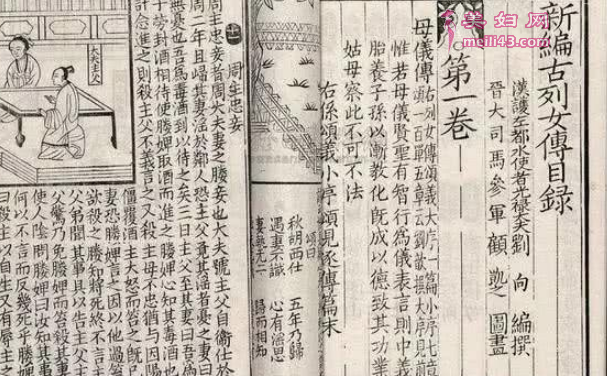 美妇网
meili43.com
新編古列女傳目録
漢護左都水使者光禄大夫劉向編撰
晉大司馬參軍顧凱之圖畫
第一卷
母儀傳
惟若母儀賢聖有智行為儀表言則中義
胎養子孫以漸教化既成以德致其功業
姑母察此不可不法
右係頌義小序頌見逐傳篇末
頌曰
秋胡西仕 五年乃歸
遇妻不識 心有淫思
妻執無二 歸而相知
十
周主忠妾
周主忠妾者周大夫妻之媵妾也大夫號主父自衛仕於
周二年且歸其妻淫於鄰人恐主父覺其淫者憂之妻曰
無憂也吾為毒酒封以待之矣三日主父至其妻曰吾為
子勞封酒相待使媵婢取酒而進之媵婢心知其毒酒也
計念進之則殺主父不義言之又殺主母不忠猶與因陽
僵覆酒主大怒而笞之既已
妻恐媵婢言之因以他過笞
欲殺之媵知將死終不言主
父弟聞其事具以告主父主
父驚乃免媵婢而笞殺其妻
使人陰問媵婢曰汝知其事
何以不言而反幾死乎媵婢
曰殺主以自生又有辱主之
大夫主父